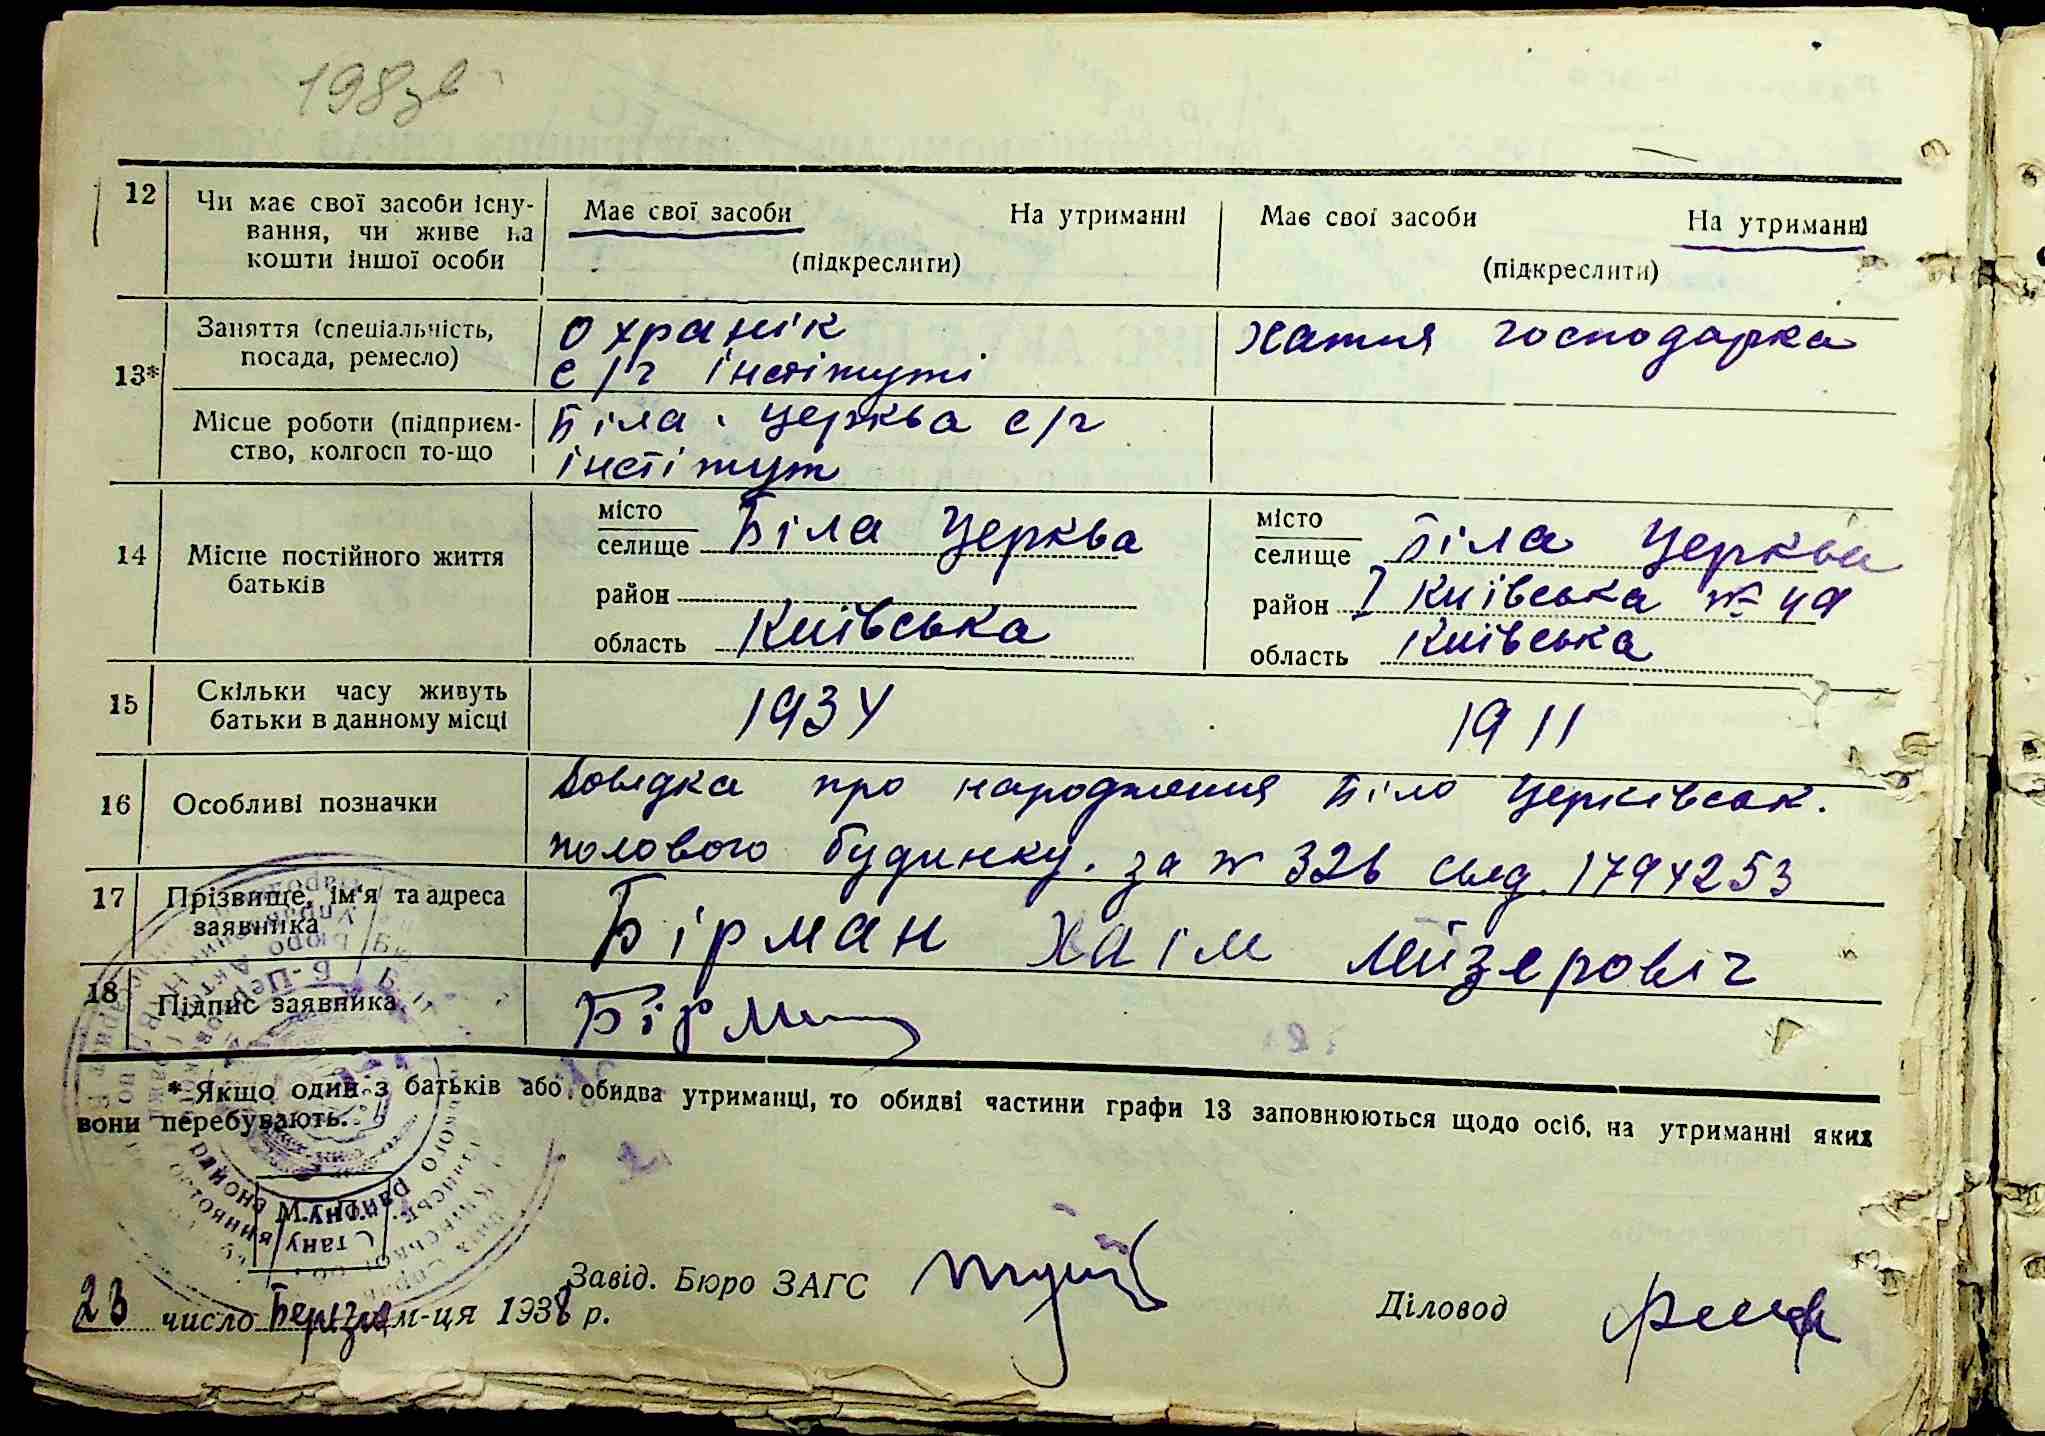 198зв
12 Чи має свої засоби існу-
вання, чи живе на
кошти іншої особи
Має свої засоби На утриманні
(підкреслити)
Має свої засоби На утриманні
(підкреслити)
13*
Заняття (спеціальність,
посада, ремесло)
Охранік
с/г інстітуті
хатня господарка
Місце роботи (підприєм-
ство, колгосп то-що
Біла Церква с/г
інстітут
14 Місце постійного життя
батьків
місто
селище Біла Церква
район
область Київська
місто
селище Біла Церква
район I Київська № 49
область Київська
15 Скільки часу живуть
батьки в данному місці
1934
1911
16 Особливі позначки
Довідка про народження Біло Церківськ.
полового будинку. за № 326 свід. 1794253
17 Прізвище, ім'я та адреса
заявника
Бірман Хаім Лейзеровіч
18 Підпис заявника
Бірман
* Якщо один з батьків або обидва утриманці, то обидві частини графи 13 заповнюються щодо осіб, на утриманні яких
вони перебувають.
М. П.
23 число Березня м-ця 1938 р.
Завід. Бюро ЗАГС
Діловод